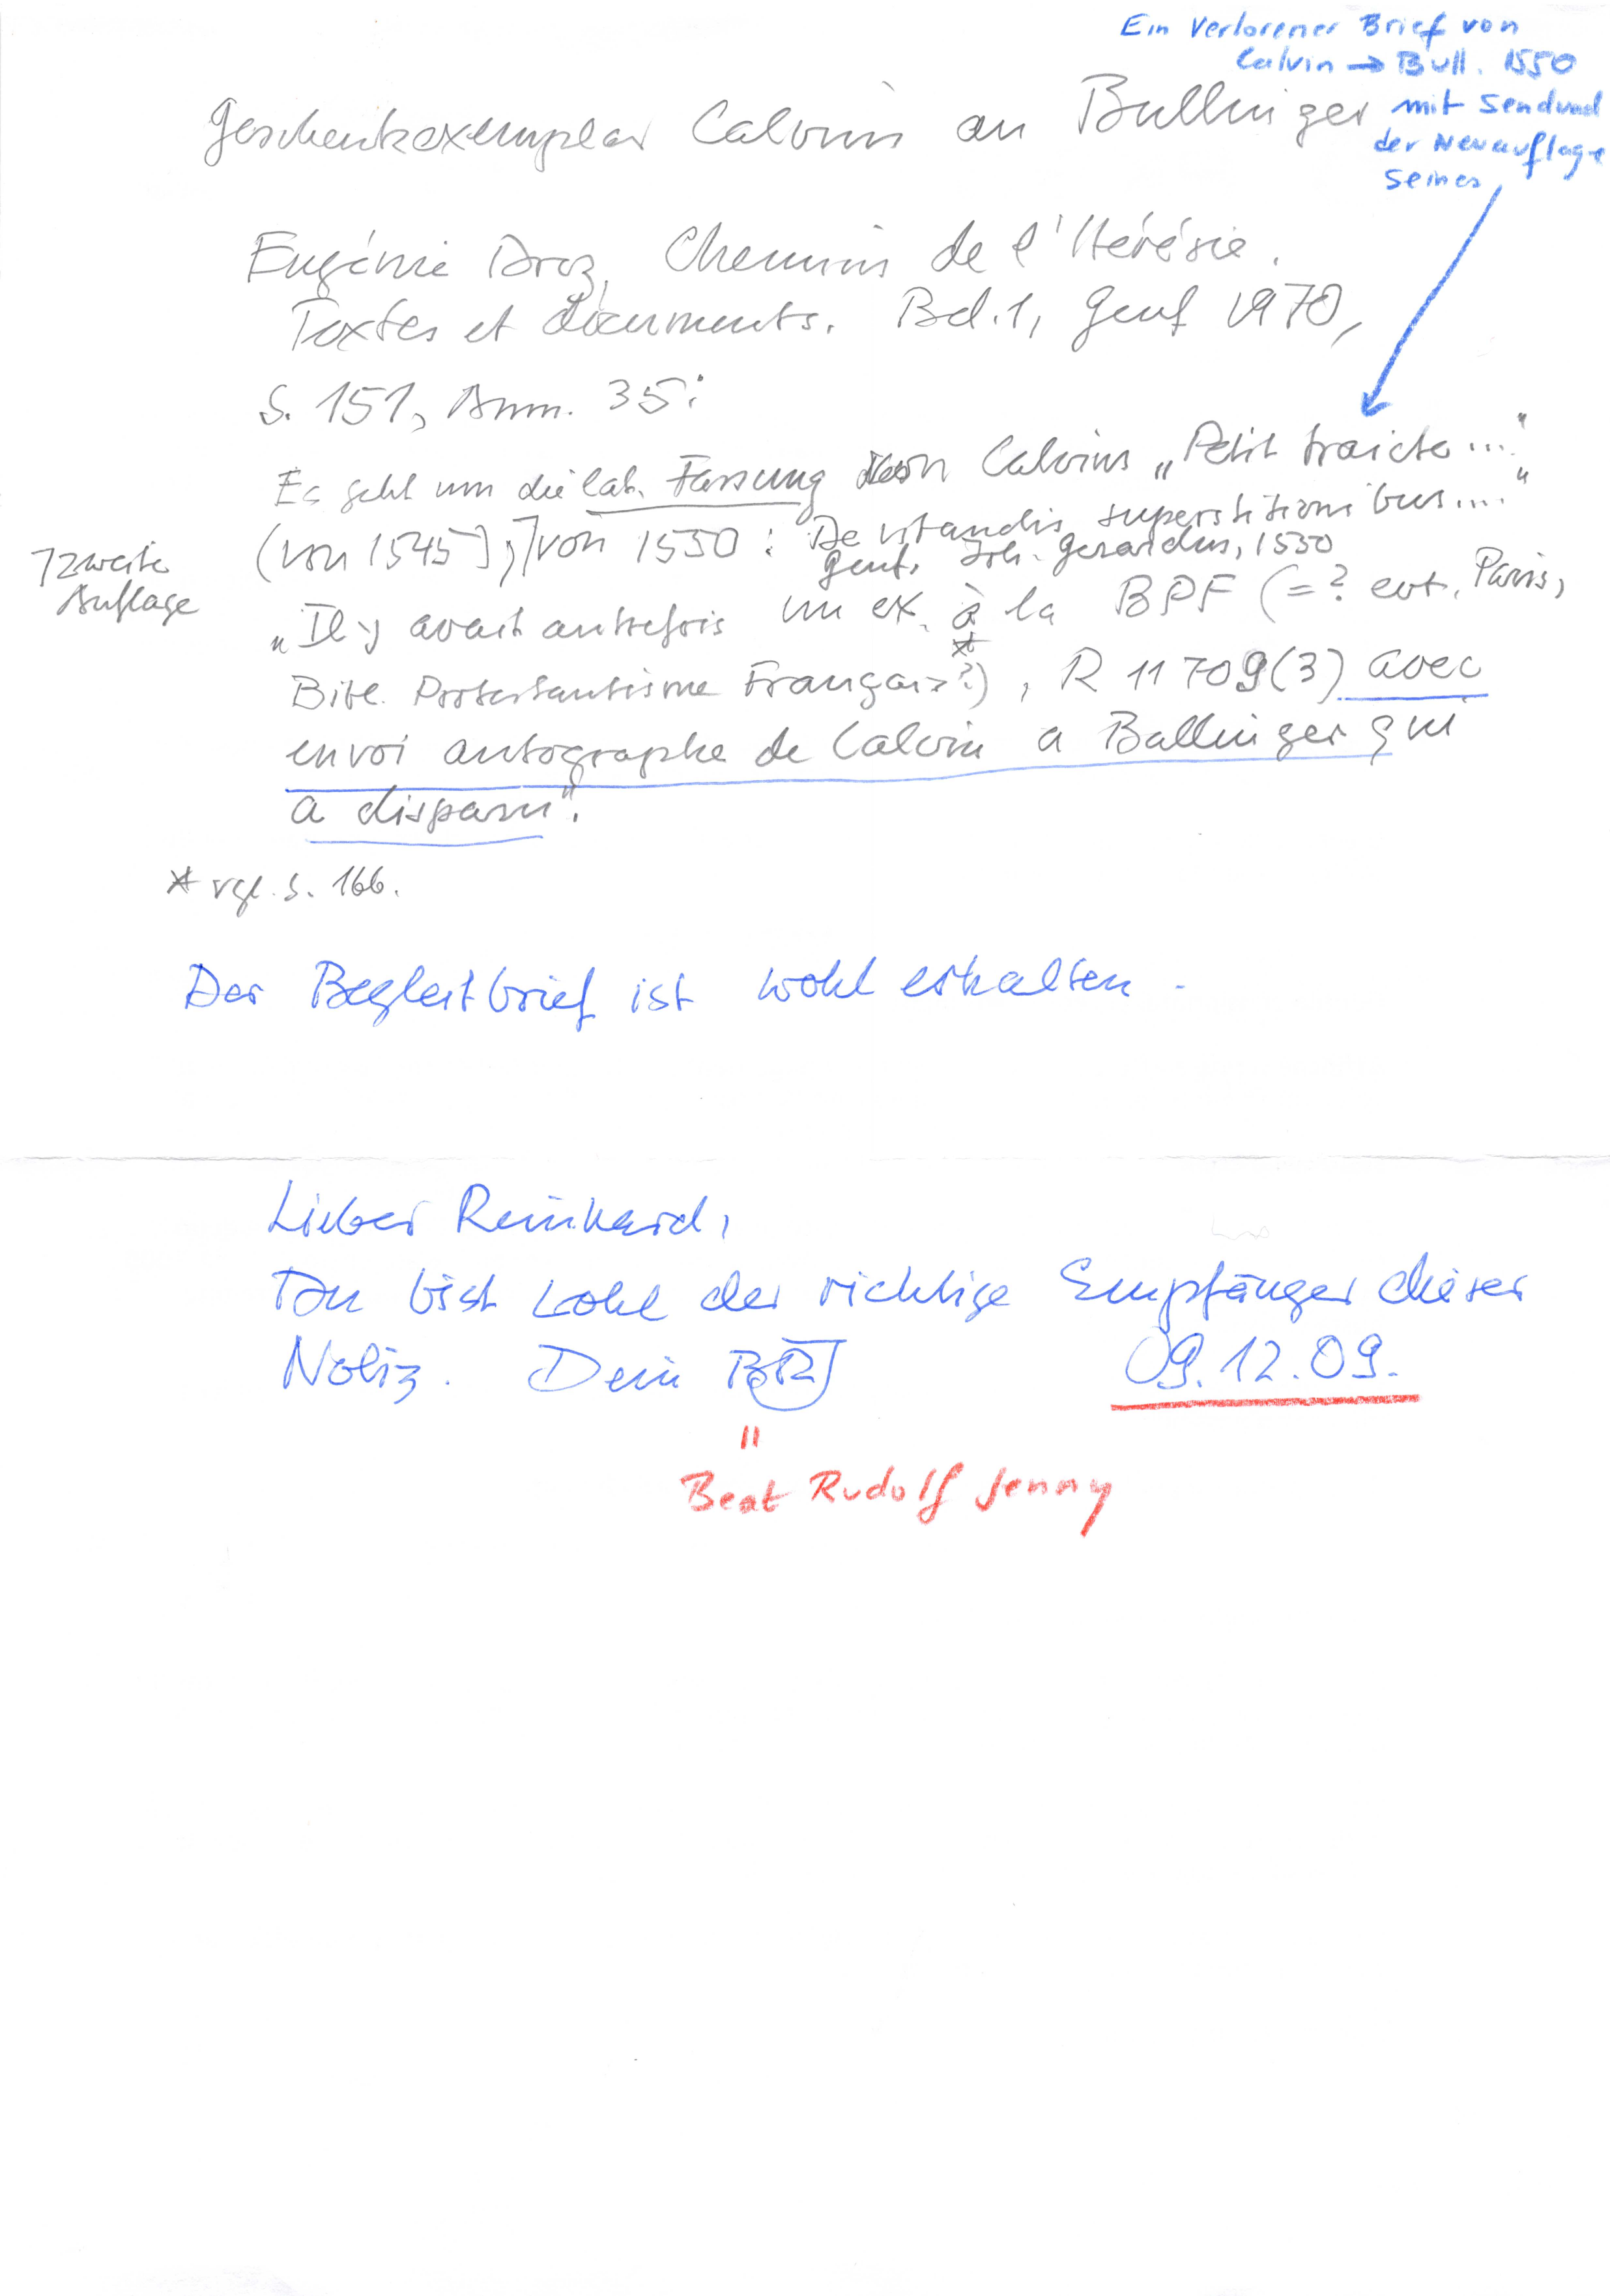 Ein verlorener Brief von
Calvin → Bull. 1550
mit Sendund
der Neuauflage
seines
Geschenkexemplar Calvins an Bullinger
Eugénie Droz, Chemins de l'Hérésie.
Textes et documents. Bd. 1, Genf 1970,
S. 151, Anm. 35:
Es geht um die lat. Fassung von Calvins „Petit traicte ..."
(von 1545), ⌉ von 1550: De vitandis superstitionibus...."
Genf, Joh. Gerardus, 1550
⌉ zweite
Auflage
„Il y avait autrefois un ex. à * la BPF (=? evt. Paris,
Bibl. Protestantisme Français?), R 11709(3) avec
envoi autographe de Calvin a Bullinger qui
a disparu".
* vgl. S. 166.
Der Begleitbrief ist wohl erhalten.
Lieber Reinhard,
Du bist wohl der richtige Empfänger dieser
Notiz. Dein BRJ 09.12.09.
=
Beat Rudolf Jenny